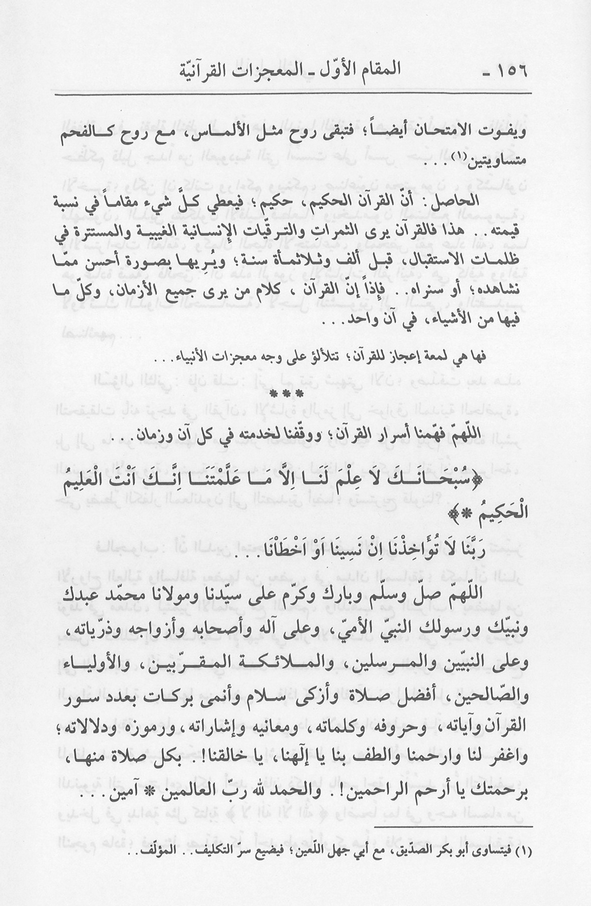 ١٥٦ - المقام الأوّل - المعجزات القرآنيّة
ويفوت الامتحان أيضاً؛ فتبقى روح مثل الألماس، مع روح كالفحم
متساويتين(١)...
الحاصل: أنّ القرآن الحكيم، حكيم؛ فيعطي كلَّ شيء مقاماً في نسبة
قيمته.. هذا فالقرآن يرى الثمرات والترقّيات الإنسانية الغيبية والمستترة في
ظلمات الاستقبال، قبل ألف وثلاثمأة سنة؛ ويُريها بصورة أحسن ممّا
نشاهده؛ أو سنراه.. فإذاً إنّ القرآن، كلام من يرى جميع الأزمان، وكلّ ما
فيها من الأشياء، في آن واحد...
فها هي لمعة إعجاز للقرآن؛ تتلألؤ على وجه معجزات الأنبياء..
***
اللهمّ فهّمنا أسرار القرآن؛ ووفّقنا لخدمته في كل آن وزمان...
﴿سُبْحَانَكَ لاَ عِلْمَ لَنَا اِلاَّ مَا عَلَّمْتَنَا اِنَّكَ اَنْتَ الْعَلِيمُ
الْحَكِيمُ *﴾
رَبَّنَا لاَ تُؤَاخِذْنَا اِنْ نَسِينَا اَوْ اَخْطَاْنَا...
اللّهمّ صل وسلّم وبارك وكرّم على سيّدنا ومولانا محمّد عبدك
ونبيّك ورسولك النبيّ الأميّ، وعلى آله وأصحابه وأزواجه وذرّياته،
وعلى النبيّين والمرسلين، والملائكة المقرّبين، والأولياء
والصّالحين، أفضل صلاة وأزكى سلام وأنمى بركات بعدد سور
القرآن وآياته، وحروفه وكلماته، ومعانيه وإشاراته، ورموزه ودلالاته؛
واغفر لنا وارحمنا والطف بنا يا إلٓهنا، يا خالقنا!. بكل صلاة منها،
برحمتك يا أرحم الراحمين!.. والحمد لله ربّ العالمين * آمين...
(١) فيتساوى أبو بكر الصدّيق، مع أبي جهل اللّعين؛ فيضيع سرّ التكليف.. المؤلّف..